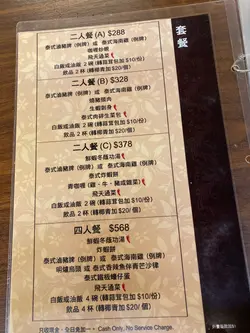 套餐
二人餐 (A) $288
泰式滷豬脾 (例牌) 或 泰式海南雞 (例牌)
咖喱炒蝦
飛天通菜
白飯或油飯 2 碗 (轉蒜茸包加 $10/份)
飲品 2 杯 (轉椰青加 $20/個)
二人餐 (B) $328
泰式滷豬脾 (例牌) 或 泰式海南雞 (例牌)
燒豬頸肉
生蝦刺身
泰式肉碎生菜包
白飯或油飯 2 碗 (轉蒜茸包加 $10/份)
飲品 2 杯 (轉椰青加 $20/個)
二人餐 (C) $378
鮮蝦冬蔭功湯
泰式滷豬脾 (例牌) 或 泰式海南雞 (例牌)
泰式炸蝦餅
青咖喱 (雞、牛、豬或雜菜)
飛天通菜
白飯或油飯 2 碗 (轉蒜茸包加 $10/份)
飲品 2 杯 (轉椰青加 $20/個)
四人餐 $568
鮮蝦冬蔭功湯
炸蝦餅
泰式滷豬脾 (例牌) 或 泰式海南雞 (例牌)
明爐烏頭 或 泰式香辣魚伴青芒沙律
泰式鐵板蠔仔蛋
飛天通菜
白飯或油飯 4 碗 (轉蒜茸包加 $10/份)
飲品 4 杯 (轉椰青加 $20/個)
只收現金，全日免加一。 Cash Only, No Service Charge.